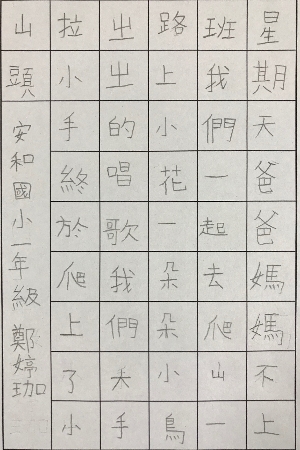 星期天爸爸媽媽不上
班我們一起去爬山一
路上小花一朵朵小鳥
出出的唱歌我們大手
拉小手終於爬上了小
山頭
安和國小一年級 鄭婷珈